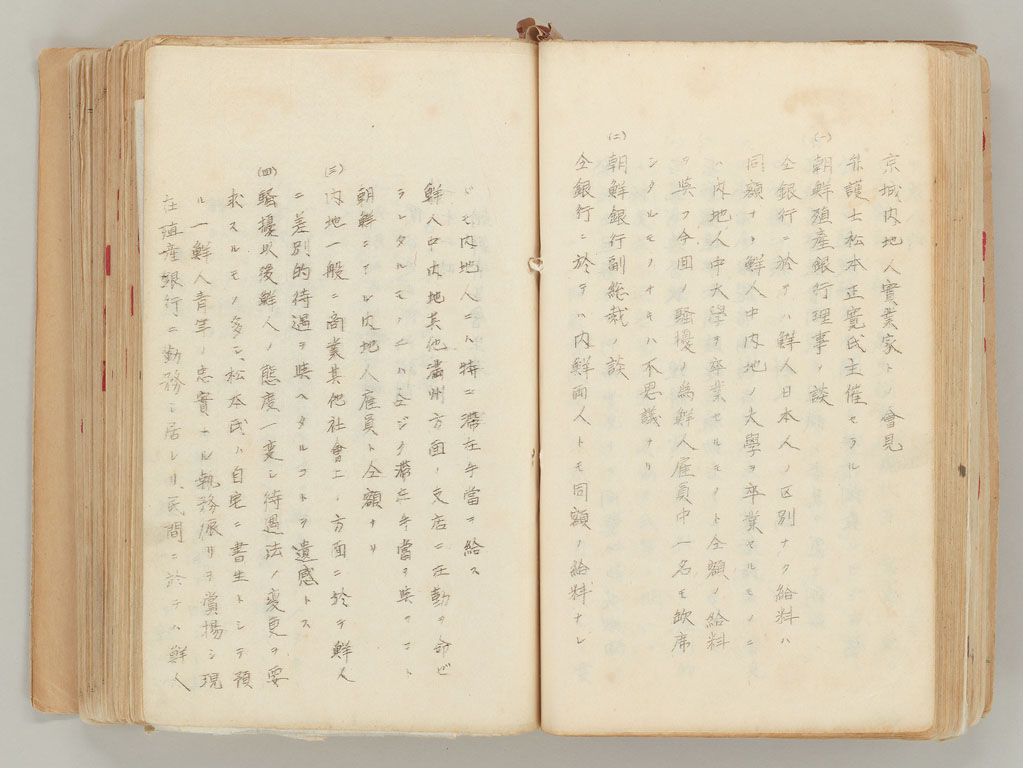 京城内地人實業家トノ會見
弁護士松本正寛氏主催セラル
(一)朝鮮殖産銀行理事ノ談
仝銀行ニ於テハ鮮人日本人ノ区別ナク給料ハ
同額ナリ鮮人中内地ノ大學ヲ卒業セルモノニ
ハ内地人中大學ヲ卒業セルモノト仝額ノ給料
ヲ與フ今回ノ騒擾ノ為鮮人雇員中一名モ欠席
シタルモノナキハ不思議ナリ
(二)朝鮮銀行副総裁ノ談
仝銀行ニ於テハ内鮮両人トモ同額ノ給料ナレ
ドモ内地人ニハ特ニ滞在手當ヲ給ス
鮮人中内地其他満州方面ノ支店ニ在勤ヲ命ゼ
ラレタルモノニハ仝ジク滞在手當ヲ與フコト
朝鮮ニテハ内地人雇員ト仝額ナリ
(三)内地一般ニ商業其他社會上ノ方面ニ於テ鮮人
ニ差別的待遇ヲ與ヘタルコトヲ遺憾トス
(四)騒擾以後鮮人ノ態度一変シ待遇法ノ変更ヲ要
求スルモノ多シ、松本氏ハ自宅ニ書生トシテ預
ル一鮮人青年ノ忠實ナル執務振リヲ賞揚シ現
在殖産銀行ニ勤務シ居レリ、民間ニ於テハ鮮人